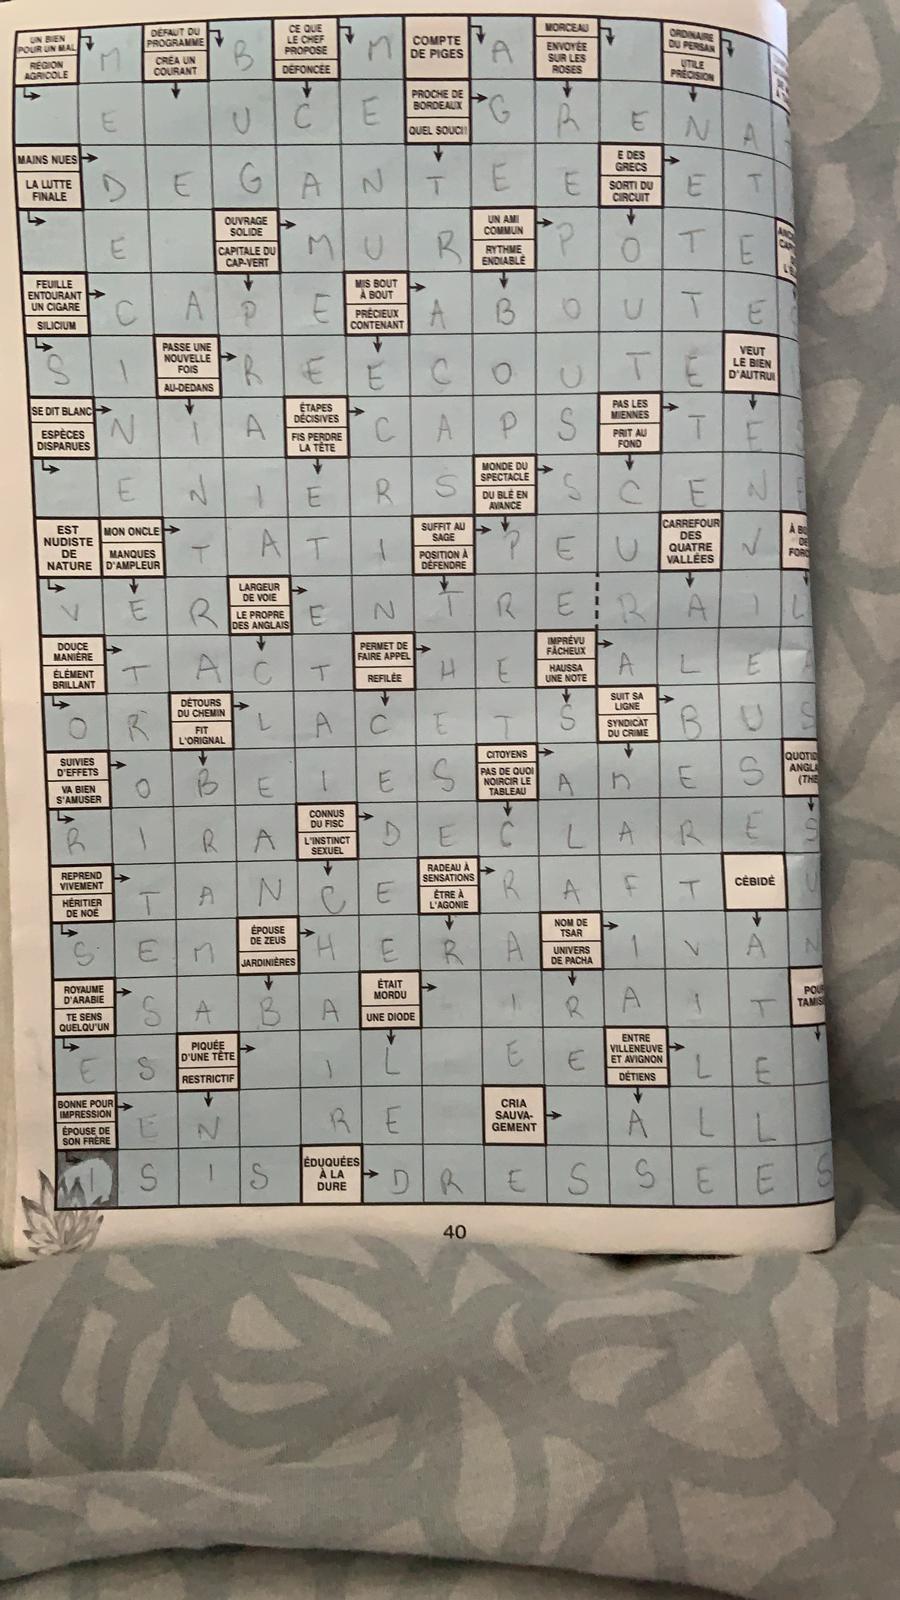 UN BIEN POUR UN MAL
RÉGION AGRICOLE
M
DÉFAUT DU PROGRAMME
CRÉA UN COURANT
B
CE QUE LE CHEF PROPOSE
DÉFONCÉE
M
COMPTE DE PIGES
A
MORCEAU
ENVOYÉE SUR LES ROSES
ORDINAIRE DU PERSAN
UTILE PRÉCISION
E U C E
PROCHE DE BORDEAUX
QUEL SOUCI!
G R E N A
MAINS NUES
LA LUTTE FINALE
D E G A N T E E
E DES GRECS
SORTI DU CIRCUIT
E T
E
OUVRAGE SOLIDE
CAPITALE DU CAP-VERT
M U R
UN AMI COMMUN
RYTHME ENDIABLÉ
P O T E
FEUILLE ENTOURANT UN CIGARE
SILICIUM
C A P E
MIS BOUT À BOUT
PRÉCIEUX CONTENANT
A B O U T E
S I
PASSE UNE NOUVELLE FOIS
AU-DEDANS
R E E C O U T E
VEUT LE BIEN D'AUTRUI
SE DIT BLANC
ESPÈCES DISPARUES
N I A
ÉTAPES DÉCISIVES
FIS PERDRE LA TÊTE
C A P S
PAS LES MIENNES
PRIT AU FOND
T E S
E N I E R S
MONDE DU SPECTACLE
DU BLÉ EN AVANCE
S C E N E
EST NUDISTE DE NATURE
MON ONCLE
MANQUES D'AMPLEUR
T A T I
SUFFIT AU SAGE
POSITION À DÉFENDRE
P E U
CARREFOUR DES QUATRE VALLÉES
V
V E R
LARGEUR DE VOIE
LE PROPRE DES ANGLAIS
E N T R E R A I L
DOUCE MANIÈRE
ÉLÉMENT BRILLANT
T A C T
PERMET DE FAIRE APPEL
REFILÉE
H E
IMPRÉVU FÂCHEUX
HAUSSA UNE NOTE
A L E A
O R
DÉTOURS DU CHEMIN
FIT L'ORIGNAL
L A C E T S
SUIT SA LIGNE
SYNDICAT DU CRIME
B U S
SUIVIES D'EFFETS
VA BIEN S'AMUSER
O B E I E S
CITOYENS
PAS DE QUOI NOIRCIR LE TABLEAU
A M E S
R I R A
CONNUS DU FISC
L'INSTINCT SEXUEL
D E C L A R E S
REPREND VIVEMENT
HÉRITIER DE NOÉ
T A N C E
RADEAU À SENSATIONS
ÊTRE À L'AGONIE
R A F T
CÉBIDÉ
U
S E M
ÉPOUSE DE ZEUS
JARDINIÈRES
H E R A
NOM DE TSAR
UNIVERS DE PACHA
I V A N
ROYAUME D'ARABIE
TE SENS QUELQU'UN
S A B A
ÉTAIT MORDU
UNE DIODE
I R A I T
E S
PIQUÉE D'UNE TÊTE
RESTRICTIF
I L E E
ENTRE VILLENEUVE ET AVIGNON
DÉTIENS
L E
BONNE POUR IMPRESSION
ÉPOUSE DE SON FRÈRE
E N R E
CRIA SAUVA-GEMENT
A L L
I S I S
ÉDUQUÉES À LA DURE
D R E S S E E S
40